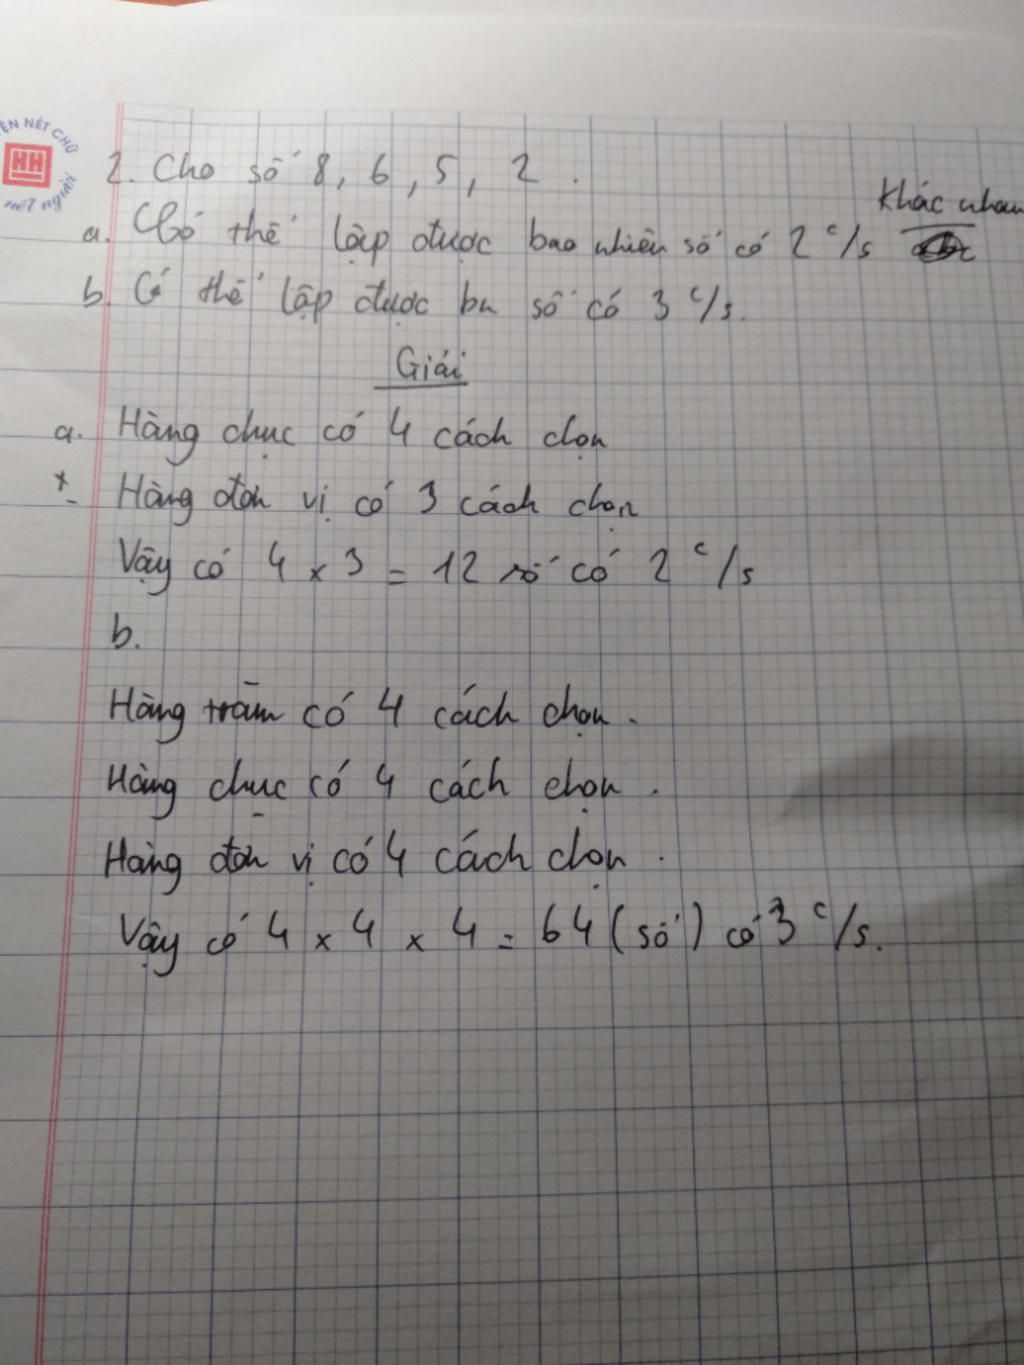 ỆN NÉT CHỮ
HH
nét người
2. Cho số 8, 6, 5, 2.
khác nhau
a. Có thể lập được bao nhiêu số có 2 c/s
b. Có thể lập được bn số có 3 c/s.
Giải
a. Hàng chục có 4 cách chọn
Hàng đơn vị có 3 cách chọn
Vậy có 4 x 3 = 12 số có 2 c/s
b.
Hàng trăm có 4 cách chọn.
Hàng chục có 4 cách chọn.
Hàng đơn vị có 4 cách chọn.
Vậy có 4 x 4 x 4 = 64 (số) có 3 c/s.